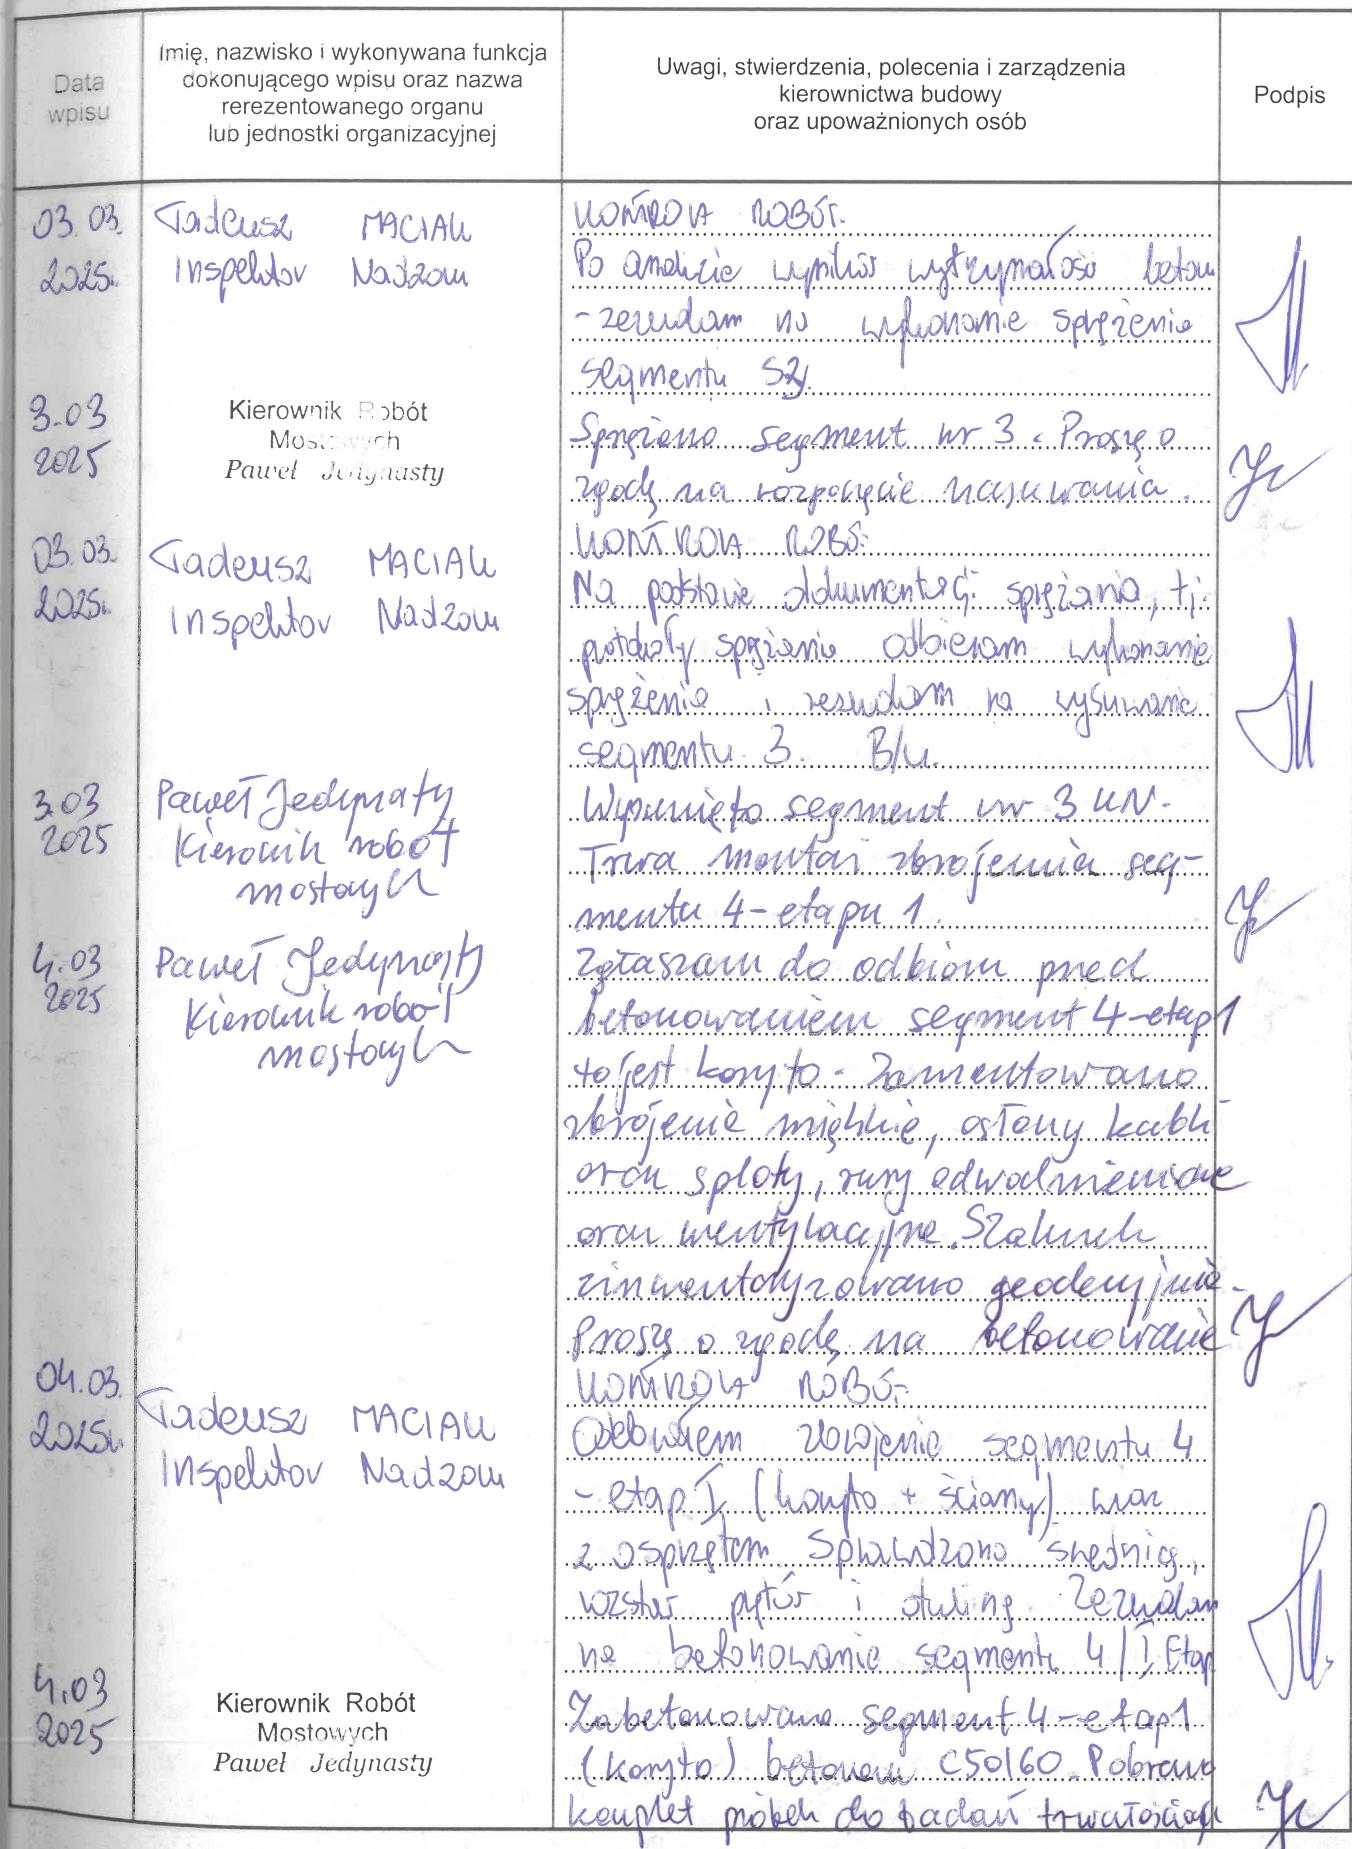 Data
wpisu
Imię, nazwisko i wykonywana funkcja
dokonującego wpisu oraz nazwa
rerezentowanego organu
lub jednostki organizacyjnej
Uwagi, stwierdzenia, polecenia i zarządzenia
kierownictwa budowy
oraz upoważnionych osób
Podpis
03.03.
2025r.
Tadeusz MACIAK
Inspektor Nadzoru
KONTROLA ROBÓT.
Po analizie wyników wytrzymałości betonu
- zezwalam na wykonanie sprężenia
segmentu
3.03
2025
Kierownik Robót
Mostowych
Paweł Jedynasty
Sprężono segment nr 3. Proszę o
zgodę na rozpoczęcie nasuwania.
03.03.
2025r.
Tadeusz MACIAK
Inspektor Nadzoru
KONTROLA ROBÓT
Na podstawie dokumentacji sprężania, tj.
protokoły sprężania odbieram wykonanie
sprężenia i zezwalam na wysuwanie
segmentu 3. B/u.
3.03
2025
Paweł Jedynasty
Kierownik robót
mostowych
Wysunięto segment nr 3 UN.
Trwa montaż zbrojenia seg-
mentu 4 - etapu 1.
4.03
2025
Paweł Jedynasty
Kierownik robót
mostowych
Zgłaszam do odbioru przed
betonowaniem segment 4 - etap 1
to jest koryto - Zamontowano
zbrojenie miękkie, osłony kabli
oraz sploty, rury odwodnieniowe
oraz wentylacyjne. Szalunek
zinwentaryzowano geodezyjnie.
Proszę o zgodę na betonowanie
04.03.
2025r.
Tadeusz MACIAK
Inspektor Nadzoru
KONTROLA ROBÓT
Odebrałem zbrojenie segmentu 4
- etap I (koryto + ściany) wraz
z osprzętem. Sprawdzono średnicę,
rozstaw prętów i otulinę. Zezwalam
na betonowanie segmentu 4/I Etap
4.03
2025
Kierownik Robót
Mostowych
Paweł Jedynasty
Zabetonowano segment 4 - etap 1
(koryto) betonem C50/60. Pobrano
komplet próbek do badań